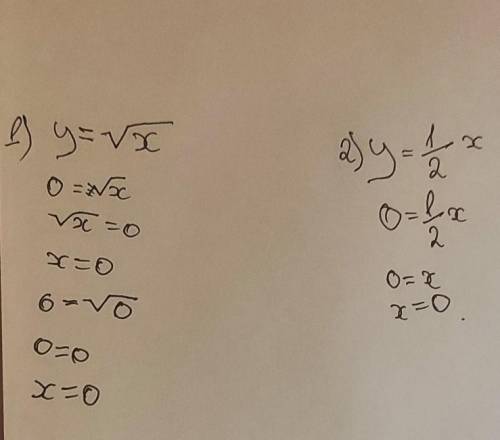 1) y = √x
0 = √x
√x = 0
x = 0
0 = √0
0 = 0
x = 0
2) y = 1/2 x
0 = 1/2 x
0 = x
x = 0.